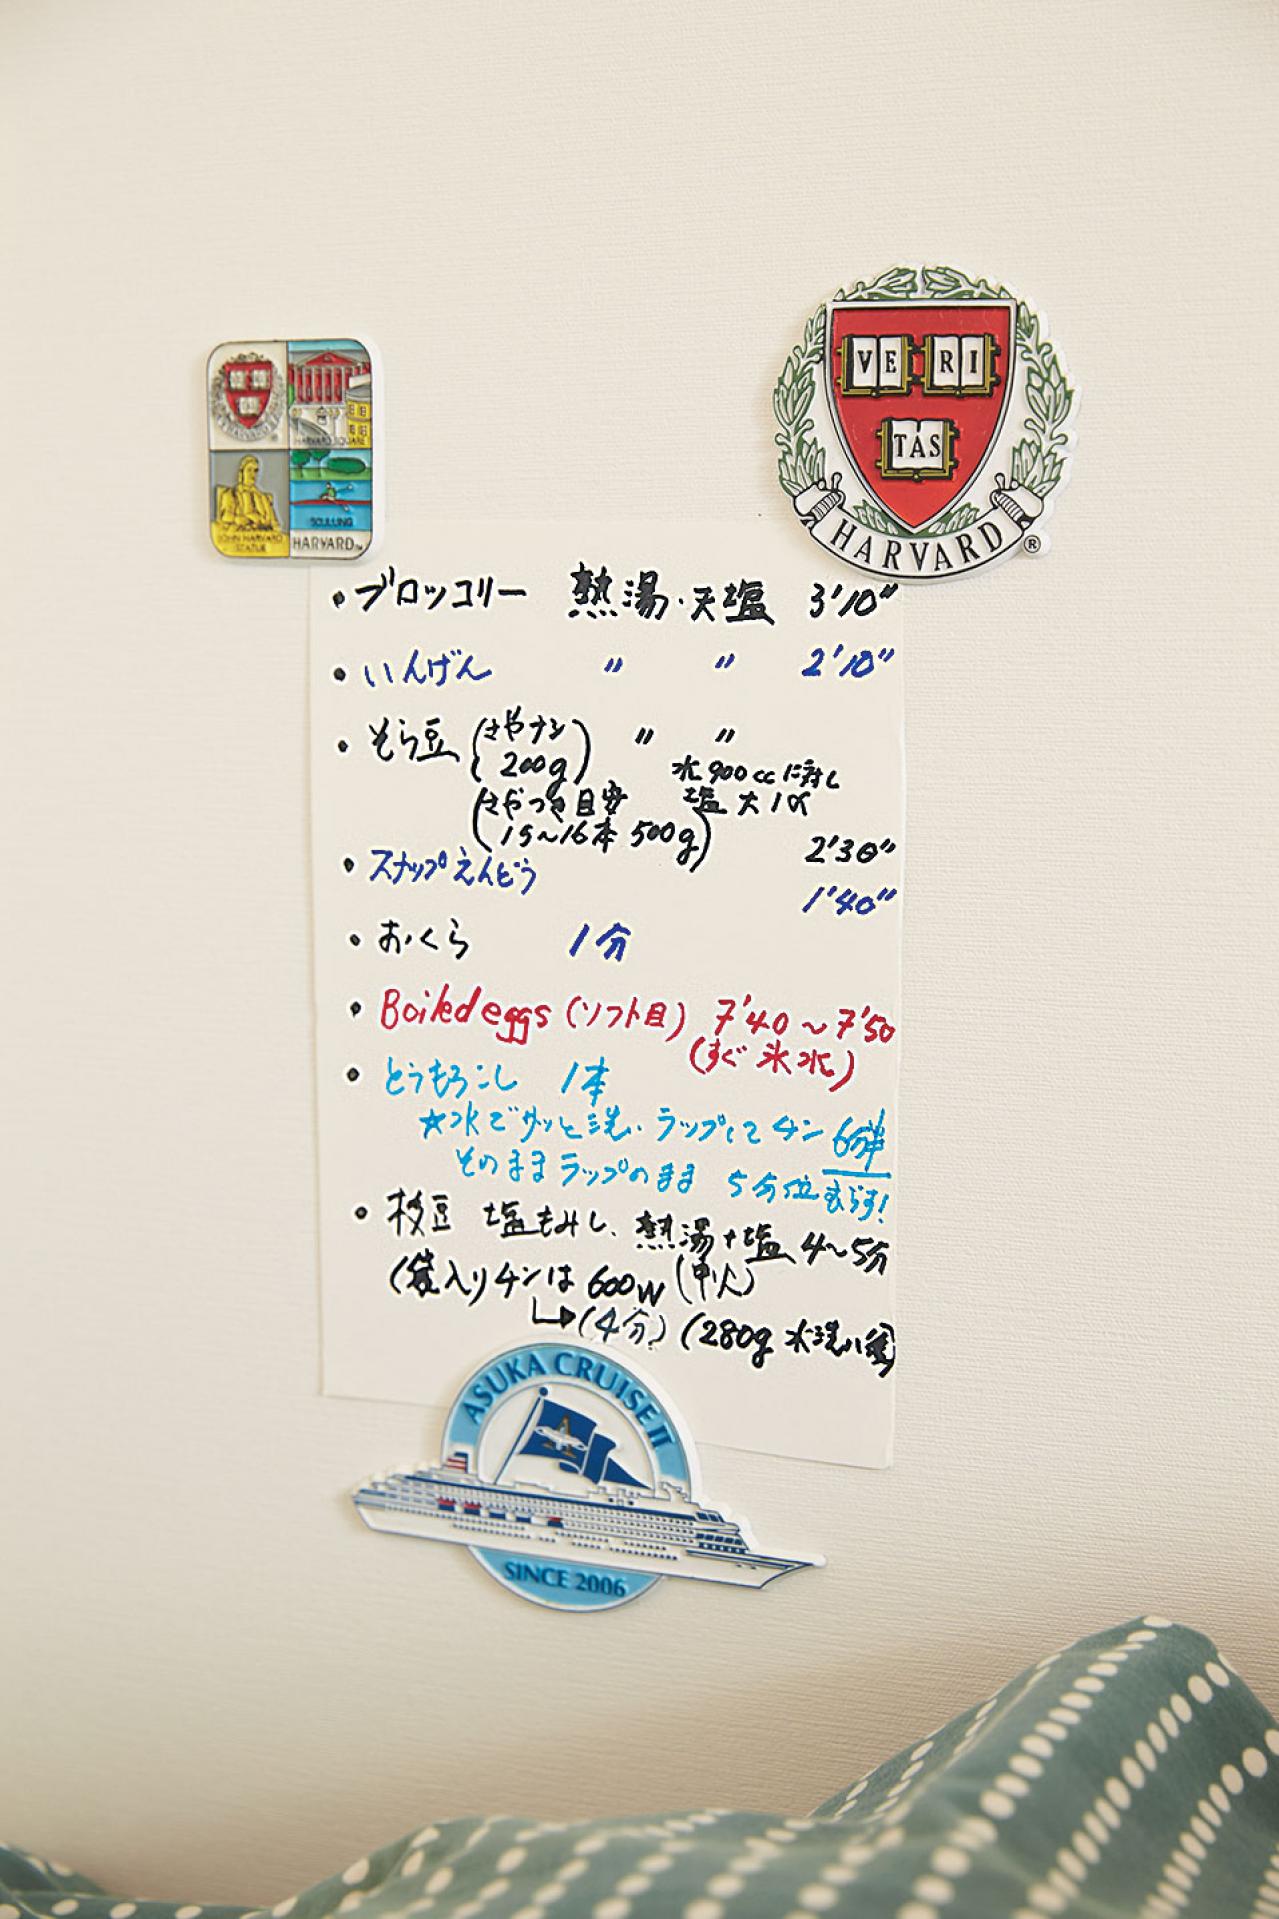 HARVARD SQUARE
JOHN HARVARD
STATUE
SCULLING
HARVARD
VE RI
TAS
HARVARD
®
・ブロッコリー 熱湯・天塩 3'10"
・いんげん 〃 〃 2'10"
・そら豆 (さやナシ 〃 〃
200g) 水900ccに対し
(さやつき目安 塩大1杯
15〜16本 500g) 2'30"
・スナップえんどう 1'40"
・おくら 1分
・Boiled eggs (ソフト目) 7'40〜7'50
(すぐ氷水)
・とうもろこし 1本
☆水でサッと洗い ラップしてチン 6分半
そのままラップのまま 5分位むらす!
・枝豆 塩もみし、熱湯+塩 4〜5分
(袋入り)チンは 600W
↳(4分) (280g 水洗い後)
ASUKA CRUISE II
SINCE 2006